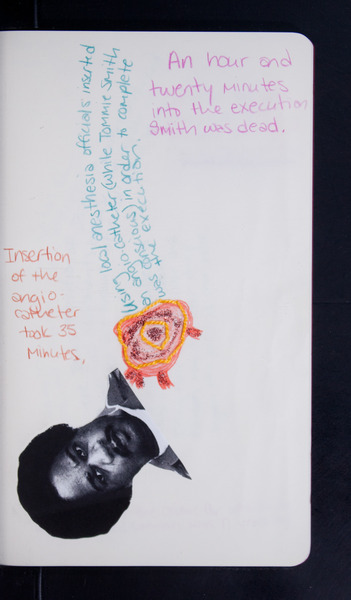 An hour and
twenty minutes
into the execution
Smith was dead.
Using local anesthesia officials inserted
an angiocatheter (while TOMMIE SMITH
was conscious) in order to complete
the execution.
Insertion
of the
angio-
catheter
took 35
minutes.